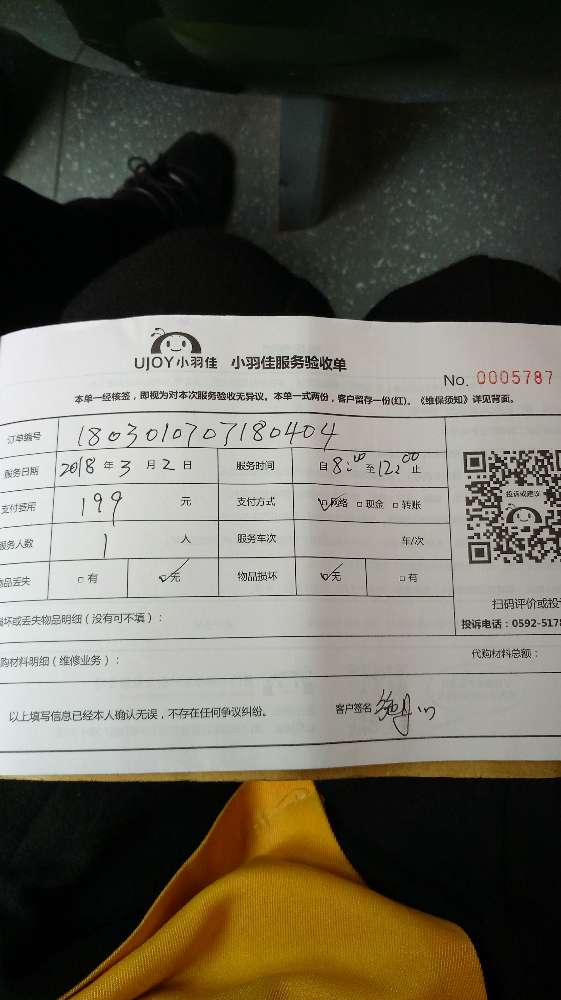 UJOY小羽佳 小羽佳服务验收单
No. 0005787
本单一经核签，即视为对本次服务验收无异议。本单一式两份，客户留存一份(红)。《维保须知》详见背面。
订单编号 1803010707180404
服务日期 2018 年 3 月 2 日 服务时间 自 8:00 至 12:00 止
支付费用 199 元 支付方式 ☑网络 □现金 □转账
服务人数 1 人 服务车次 车/次
物品丢失 □有 ☑无 物品损坏 ☑无 □有
投诉或建议
扫码评价或投
损坏或丢失物品明细（没有可不填）：
投诉电话：0592-5178
购材料明细（维修业务）： 代购材料总额：
以上填写信息已经本人确认无误，不存在任何争议纠纷。 客户签名